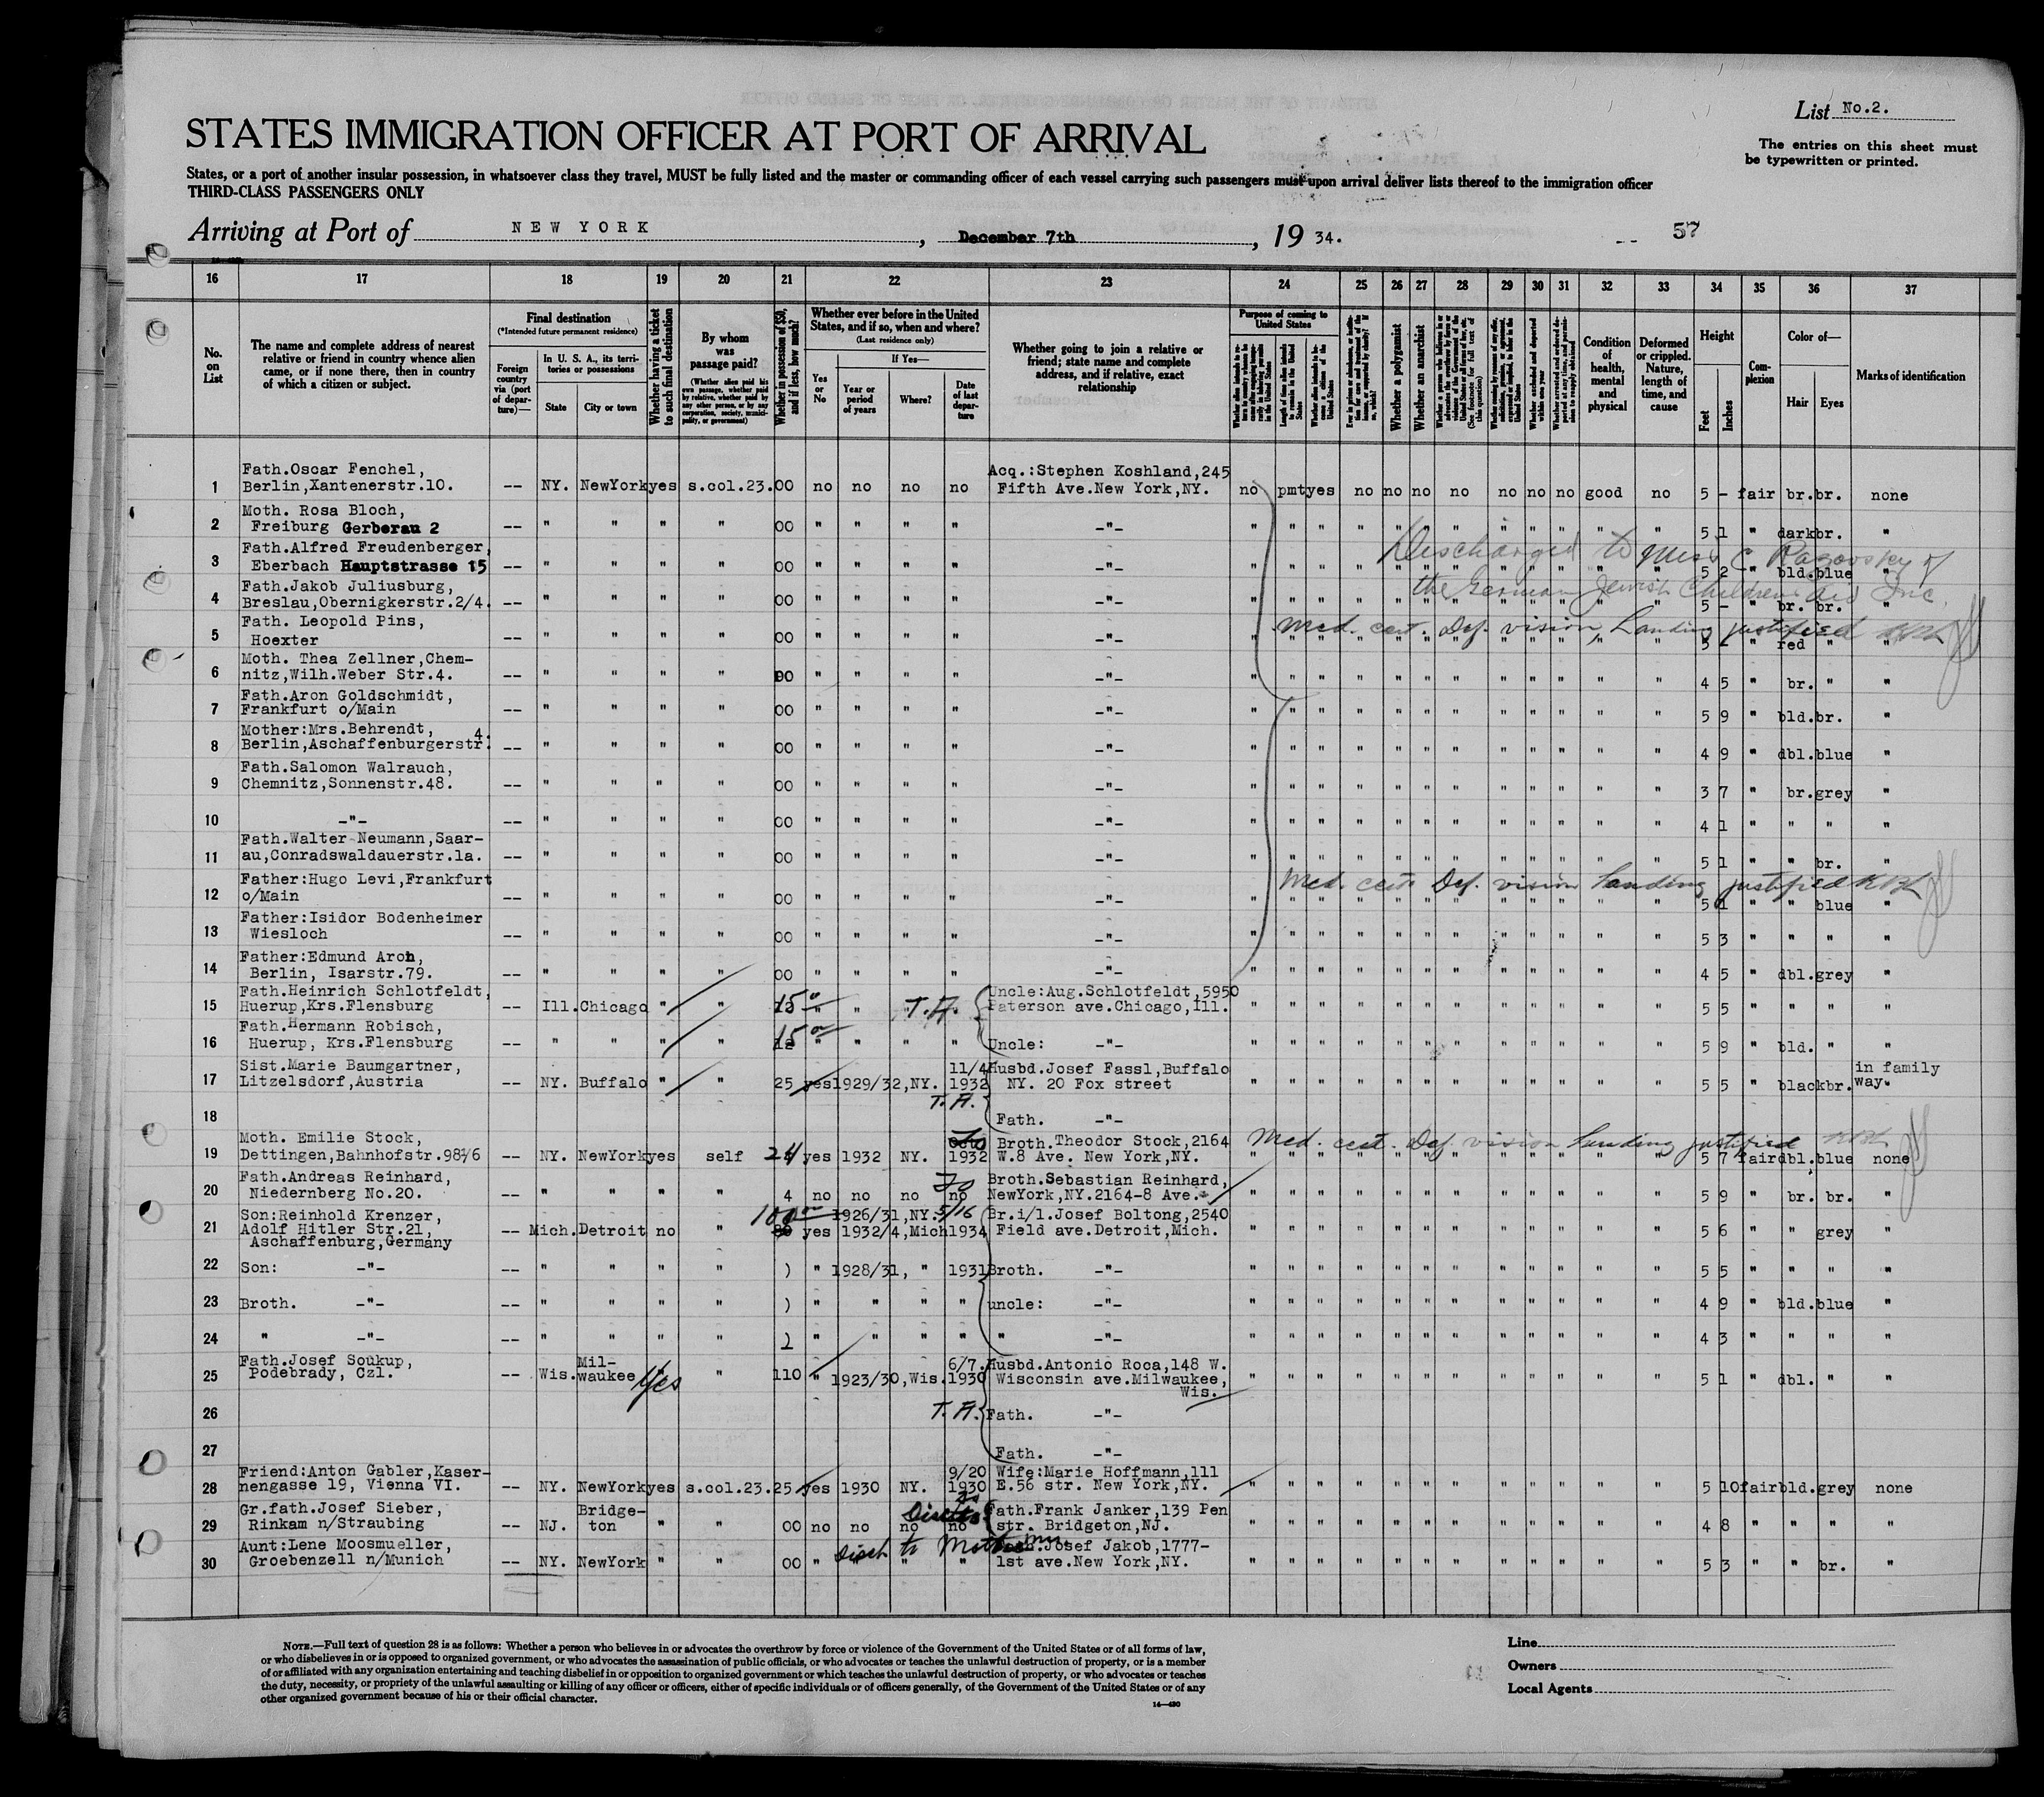 List No.2.
STATES IMMIGRATION OFFICER AT PORT OF ARRIVAL
The entries on this sheet must
be typewritten or printed.
States, or a port of another insular possession, in whatsoever class they travel, MUST be fully listed and the master or commanding officer of each vessel carrying such passengers must upon arrival deliver lists thereof to the immigration officer
THIRD-CLASS PASSENGERS ONLY
Arriving at Port of NEW YORK, December 7th, 19 34.
-- 57
16 17 18 19 20 21 22 23 24 25 26 27 28 29 30 31 32 33 34 35 36 37
No. on List
The name and complete address of nearest relative or friend in country whence alien came, or if none there, then in country of which a citizen or subject.
Final destination
(*Intended future permanent residence)
Foreign country via (port of departure)—
In U. S. A., its territories or possessions
State
City or town
Whether having a ticket to such final destination
By whom was passage paid?
(Whether alien paid his own passage, whether paid by relative, whether paid by any other person, or by any corporation, society, municipality, or government)
Whether in possession of $50, and if less, how much?
Whether ever before in the United States, and if so, when and where?
(Last residence only)
Yes or No
If Yes—
Year or period of years
Where?
Date of last departure
Whether going to join a relative or friend; state name and complete address, and if relative, exact relationship
Purpose of coming to United States
Whether a polygamist
Whether an anarchist
Condition of health, mental and physical
Deformed or crippled. Nature, length of time, and cause
Height
Feet
Inches
Complexion
Color of—
Hair
Eyes
Marks of identification
1 Fath.Oscar Fenchel, Berlin,Xantenerstr.10. -- NY. NewYork yes s.col.23. 00 no no no no Acq.:Stephen Koshland,245 Fifth Ave.New York,NY. no pmt yes no no no no no no no good no 5 - fair br. br. none
2 Moth. Rosa Bloch, Freiburg Gerberau 2 -- " " " " 00 " " " " -"- " " " " " " " " " " " " 5 1 " dark br. "
Discharged to Miss C Razovsky of
3 Fath.Alfred Freudenberger, Eberbach Hauptstrasse 15 -- " " " " 00 " " " " -"- " " " " " " " " " " " " 5 2 " bld. blue "
the German Jewish Childrens Aid Inc
4 Fath.Jakob Juliusburg, Breslau,Obernigkerstr.2/4. -- " " " " 00 " " " " -"- " " " " " " " " " " " " 5 - " br. br. "
Med. cert. Def. vision, Landing justified
5 Fath. Leopold Pins, Hoexter -- " " " " 00 " " " " -"- " " " " " " " " " " " " 5 " red " "
6 Moth. Thea Zellner,Chem- nitz,Wilh.Weber Str.4. -- " " " " 00 " " " " -"- " " " " " " " " " " " " 4 5 " br. " "
7 Fath.Aron Goldschmidt, Frankfurt o/Main -- " " " " 00 " " " " -"- " " " " " " " " " " " " 5 9 " bld. br. "
8 Mother:Mrs.Behrendt, Berlin,Aschaffenburgerstr. 4. -- " " " " 00 " " " " -"- " " " " " " " " " " " " 4 9 " dbl. blue "
9 Fath.Salomon Walrauch, Chemnitz,Sonnenstr.48. -- " " " " 00 " " " " -"- " " " " " " " " " " " " 3 7 " br. grey "
10 -"- -- " " " " 00 " " " " -"- " " " " " " " " " " " " 4 1 " " " "
11 Fath.Walter Neumann,Saar- au,Conradswaldauerstr.1a. -- " " " " 00 " " " " -"- " " " " " " " " " " " " 5 1 " " br. "
Med. cert. Def. vision landing justified
12 Father:Hugo Levi,Frankfurt o/Main -- " " " " 00 " " " " -"- " " " " " " " " " " " " 5 1 " " blue "
13 Father:Isidor Bodenheimer Wiesloch -- " " " " 00 " " " " -"- " " " " " " " " " " " " 5 3 " " " "
14 Father:Edmund Aron, Berlin, Isarstr.79. -- " " " " 00 " " " " -"- " " " " " " " " " " " " 4 5 " dbl. grey "
15 Fath.Heinrich Schlotfeldt, Huerup,Krs.Flensburg -- Ill. Chicago " " 15 " " T.A. Uncle:Aug.Schlotfeldt,5950 Paterson ave.Chicago,Ill. " " " " " " " " " " " " 5 5 " " " "
16 Fath.Hermann Robisch, Huerup, Krs.Flensburg -- " " " " 15 " " " " Uncle: -"- " " " " " " " " " " " " 5 9 " bld. " "
17 Sist.Marie Baumgartner, Litzelsdorf,Austria -- NY. Buffalo " " 25 yes 1929/32,NY. 11/4 1932 Husbd.Josef Fassl,Buffalo NY. 20 Fox street " " " " " " " " " " " " 5 5 " black br. in family way.
18 T.A. Fath. -"-
Med. cert. Def. vision landing justified
19 Moth. Emilie Stock, Dettingen,Bahnhofstr.98 1/6 -- NY. NewYork yes self 24 yes 1932 NY. 1932 Broth.Theodor Stock,2164 W.8 Ave. New York,NY. " " " " " " " " " " " " 5 7 fair dbl. blue none
20 Fath.Andreas Reinhard, Niedernberg No.20. -- " " " " 4 no no no no Broth.Sebastian Reinhard, NewYork,NY.2164-8 Ave. " " " " " " " " " " " " 5 9 " br. br. "
21 Son:Reinhold Krenzer, Adolf Hitler Str.21, Aschaffenburg,Germany -- Mich. Detroit no " 100 yes 1926/31,NY. 1932/4,Mich 5/16 1934 Br.i/l.Josef Boltong,2540 Field ave.Detroit,Mich. " " " " " " " " " " " " 5 6 " " grey "
22 Son: -"- -- " " " " ) " 1928/31, " 1931 Broth. -"- " " " " " " " " " " " " 5 5 " " " "
23 Broth. -"- -- " " " " ) " " " " uncle: -"- " " " " " " " " " " " " 4 9 " bld. blue "
24 " -"- -- " " " " ) " " " " " -"- " " " " " " " " " " " " 4 3 " " " "
25 Fath.Josef Soukup, Podebrady, Czl. -- Wis. Mil- waukee Yes " 110 " 1923/30,Wis. 6/7. 1930 Husbd.Antonio Roca,148 W. Wisconsin ave.Milwaukee, Wis. " " " " " " " " " " " " 5 1 " dbl. " "
26 T.A. Fath. -"-
27 Fath. -"-
28 Friend:Anton Gabler,Kaser- nengasse 19, Vienna VI. -- NY. NewYork yes s.col.23. 25 yes 1930 NY. 9/20 1930 Wife:Marie Hoffmann,111 E.56 str. New York,NY. " " " " " " " " " " " " 5 10 fair bld. grey none
29 Gr.fath.Josef Sieber, Rinkam n/Straubing -- NJ. Bridge- ton " " 00 no no no no Fath.Frank Janker,139 Pen str. Bridgeton,NJ. " " " " " " " " " " " " 4 8 " " " "
Disch to Mother
30 Aunt:Lene Moosmueller, Groebenzell n/Munich -- NY. NewYork " " 00 " " " " Josef Jakob,1777- 1st ave.New York,NY. " " " " " " " " " " " " 5 3 " " br. "
NOTE.—Full text of question 28 is as follows: Whether a person who believes in or advocates the overthrow by force or violence of the Government of the United States or of all forms of law,
or who disbelieves in or is opposed to organized government, or who advocates the assassination of public officials, or who advocates or teaches the unlawful destruction of property, or is a member
of or affiliated with any organization entertaining and teaching disbelief in or opposition to organized government or which teaches the unlawful destruction of property, or who advocates or teaches
the duty, necessity, or propriety of the unlawful assaulting or killing of any officer or officers, either of specific individuals or of officers generally, of the Government of the United States or of any
other organized government because of his or their official character.
14—430
Line
Owners
Local Agents